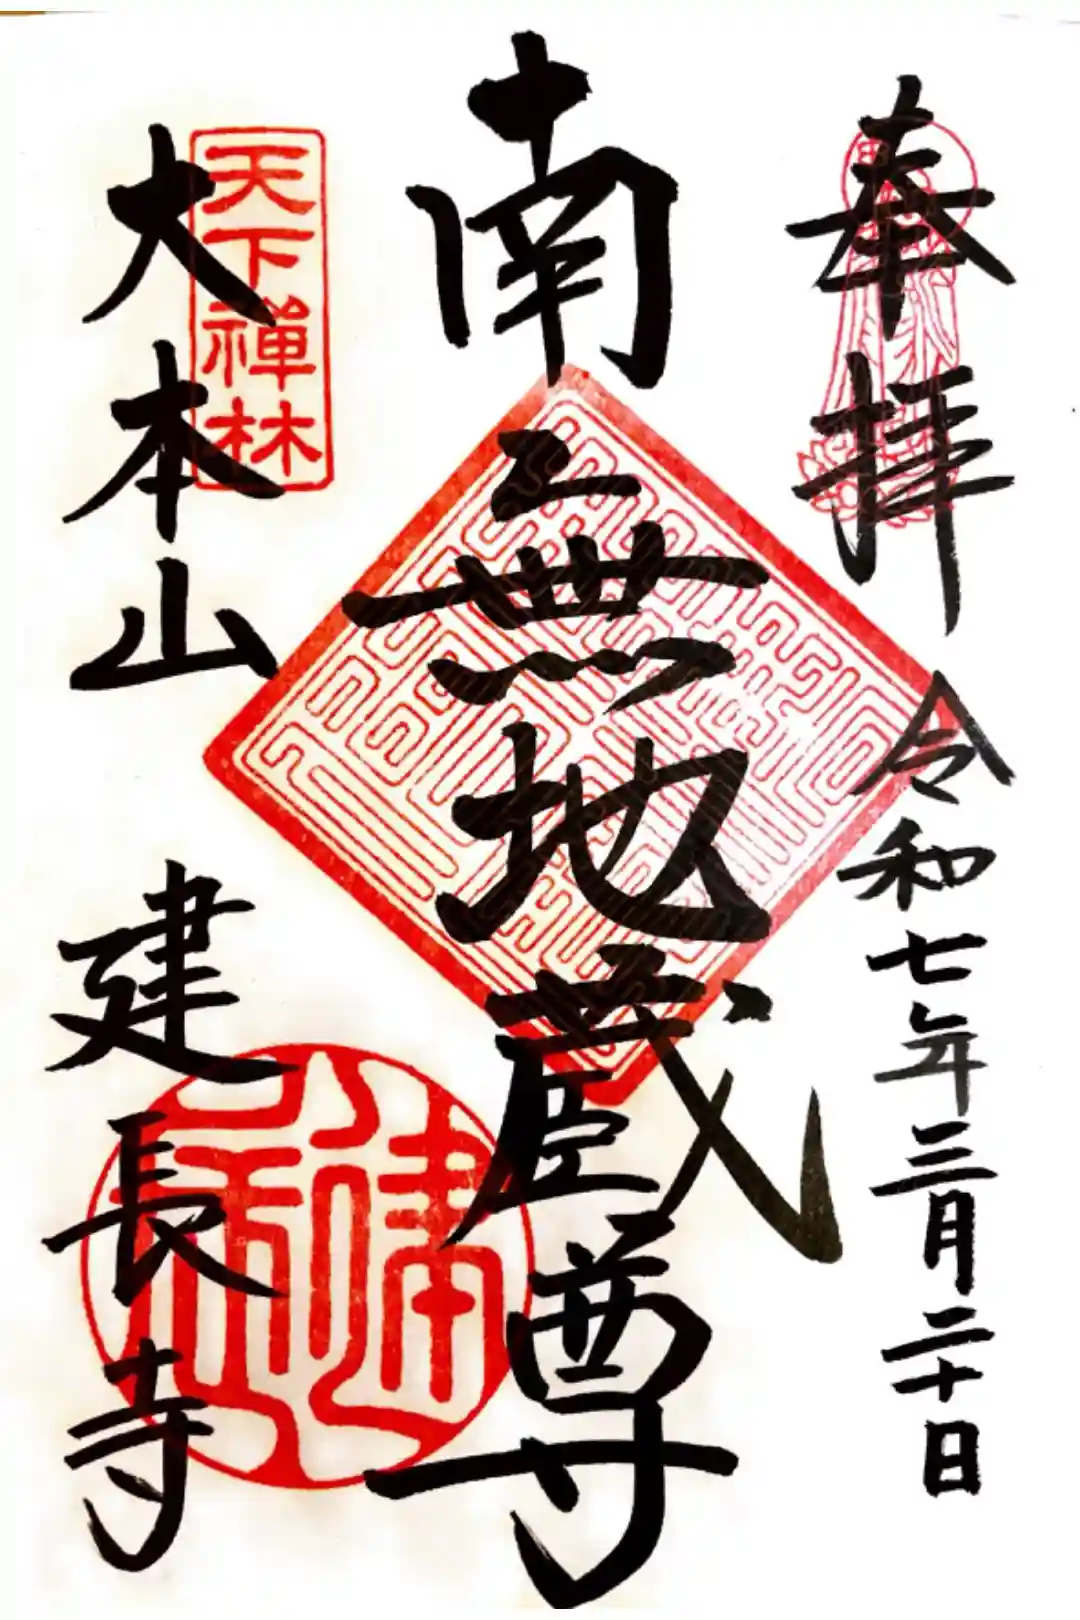 奉拝
令和七年三月二十日
南無地蔵尊
天下禅林
大本山
建長寺